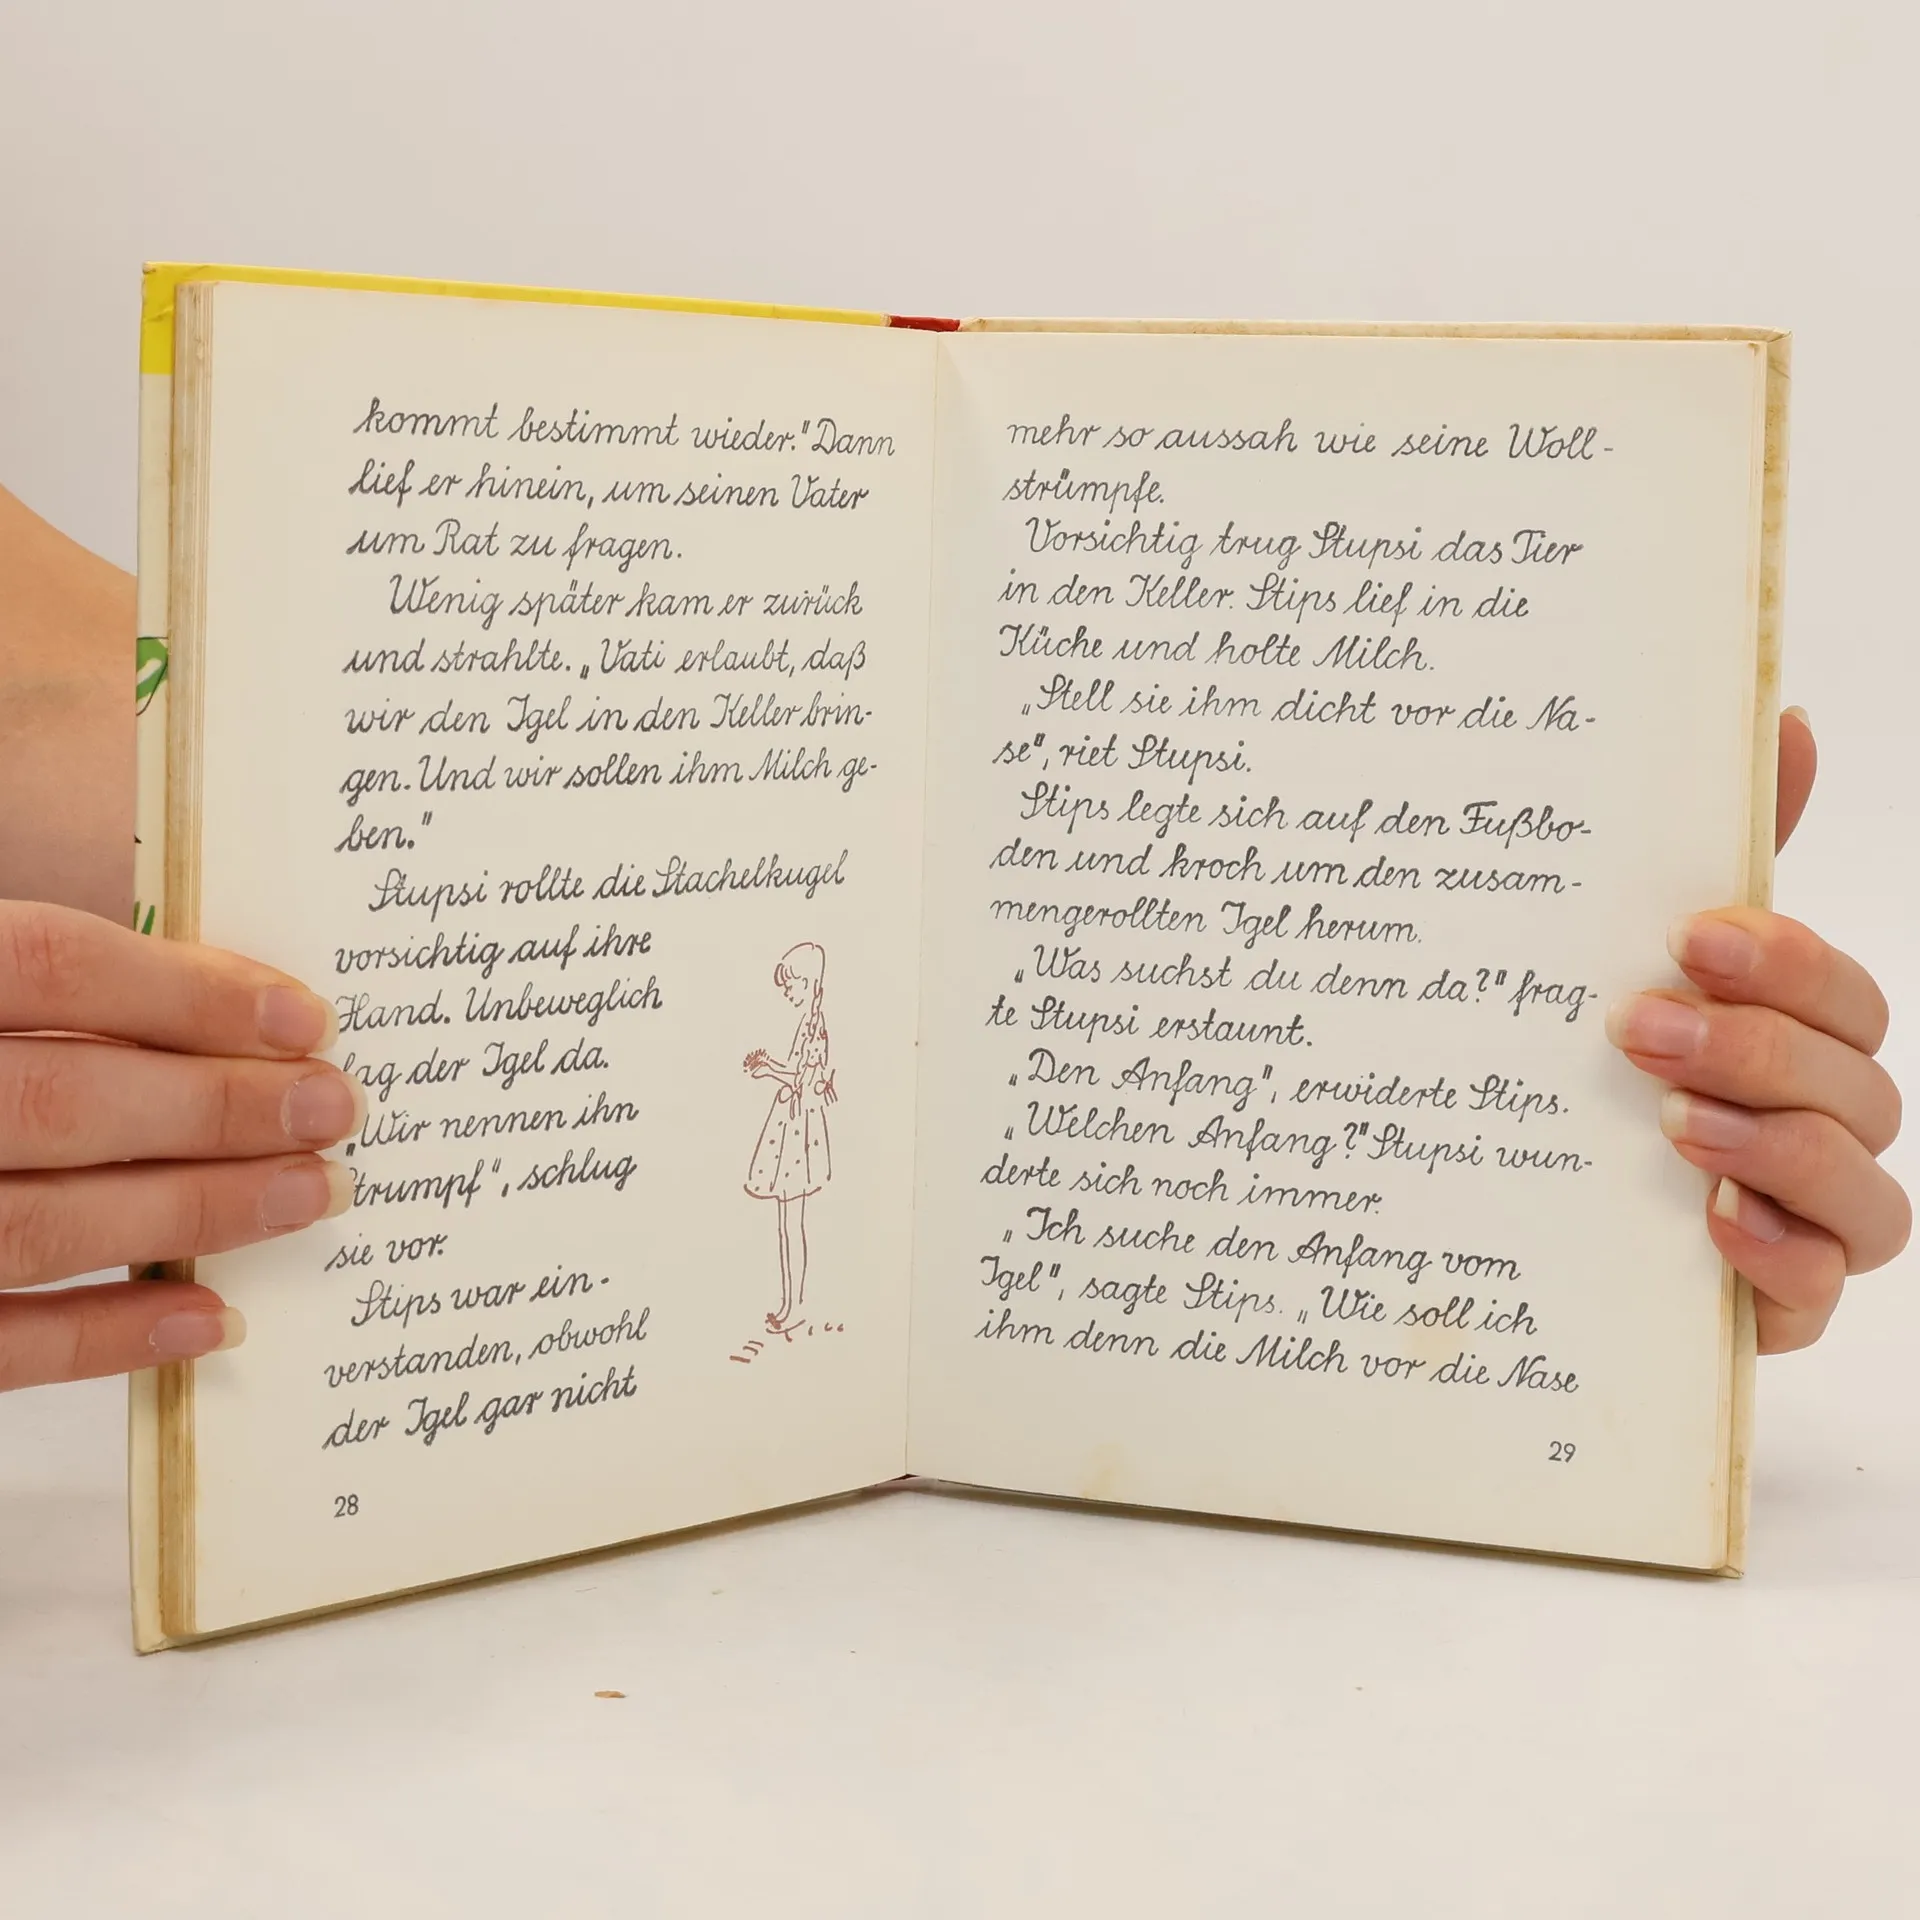 kommt bestimmt wieder." Dann
lief er hinein, um seinen Vater
um Rat zu fragen.
Wenig später kam er zurück
und strahlte. „Vati erlaubt, daß
wir den Igel in den Keller brin-
gen. Und wir sollen ihm Milch ge-
ben."
Stupsi rollte die Stachelkugel
vorsichtig auf ihre
Hand. Unbeweglich
lag der Igel da.
„Wir nennen ihn
Strumpf", schlug
sie vor.
Stips war ein-
verstanden, obwohl
der Igel gar nicht
28
mehr so aussah wie seine Woll-
strümpfe.
Vorsichtig trug Stupsi das Tier
in den Keller. Stips lief in die
Küche und holte Milch.
„Stell sie ihm dicht vor die Na-
se", riet Stupsi.
Stips legte sich auf den Fußbo-
den und kroch um den zusam-
mengerollten Igel herum.
„Was suchst du denn da?" frag-
te Stupsi erstaunt.
„Den Anfang", erwiderte Stips.
„Welchen Anfang?" Stupsi wun-
derte sich noch immer.
„Ich suche den Anfang vom
Igel", sagte Stips. „Wie soll ich
ihm denn die Milch vor die Nase
29